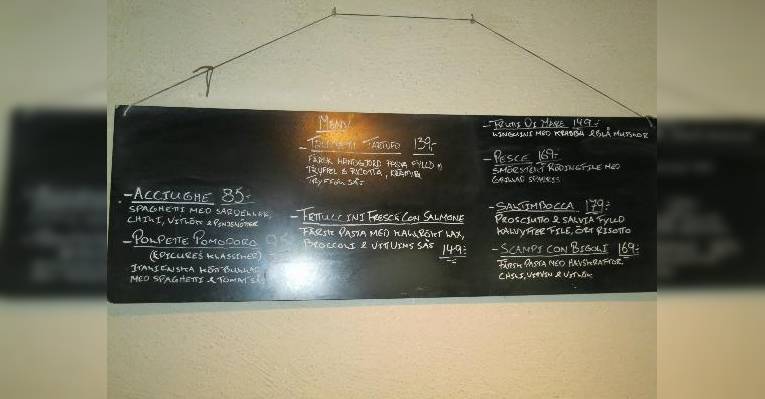 MENY
-ACCIUGHE 85:-
SPAGHETTI MED SARDELLER,
CHILI, VITLÖK & PINJENÖTTER
-POLPETTE POMODORO
(EPICURES KLASSIKER)
ITALIENSKA KÖTTBULLAR
MED SPAGHETTI & TOMATSÅS
TARTUFO 139:-
FÄRSK HANDGJORD PASTA FYLLD M
TRYFFEL & RICOTTA,
TRYFFELSÅS
-FETTUCCINI FRESCA CON SALMONE
FÄRSK PASTA MED KALLRÖKT LAX,
BROCCOLI & VITVINS SÅS
149:-
-FRUTTI DI MARE 149:-
LINGUINI MED KRABBA & BLÅ MUSSLOR
-PESCE 169:-
SMÖRSTEKT RÖDINGFILE MED
GRILLAD SPARRIS
-SALTIMBOCCA 179:-
PROSCIUTTO & SALVIA FYLLD
KALVYTTER FILE, ÖRT RISOTTO
-SCAMPI CON BIGOLI 169:-
FÄRSK PASTA MED HAVSKRÄFTOR
CHILI, VITVIN & VITLÖK